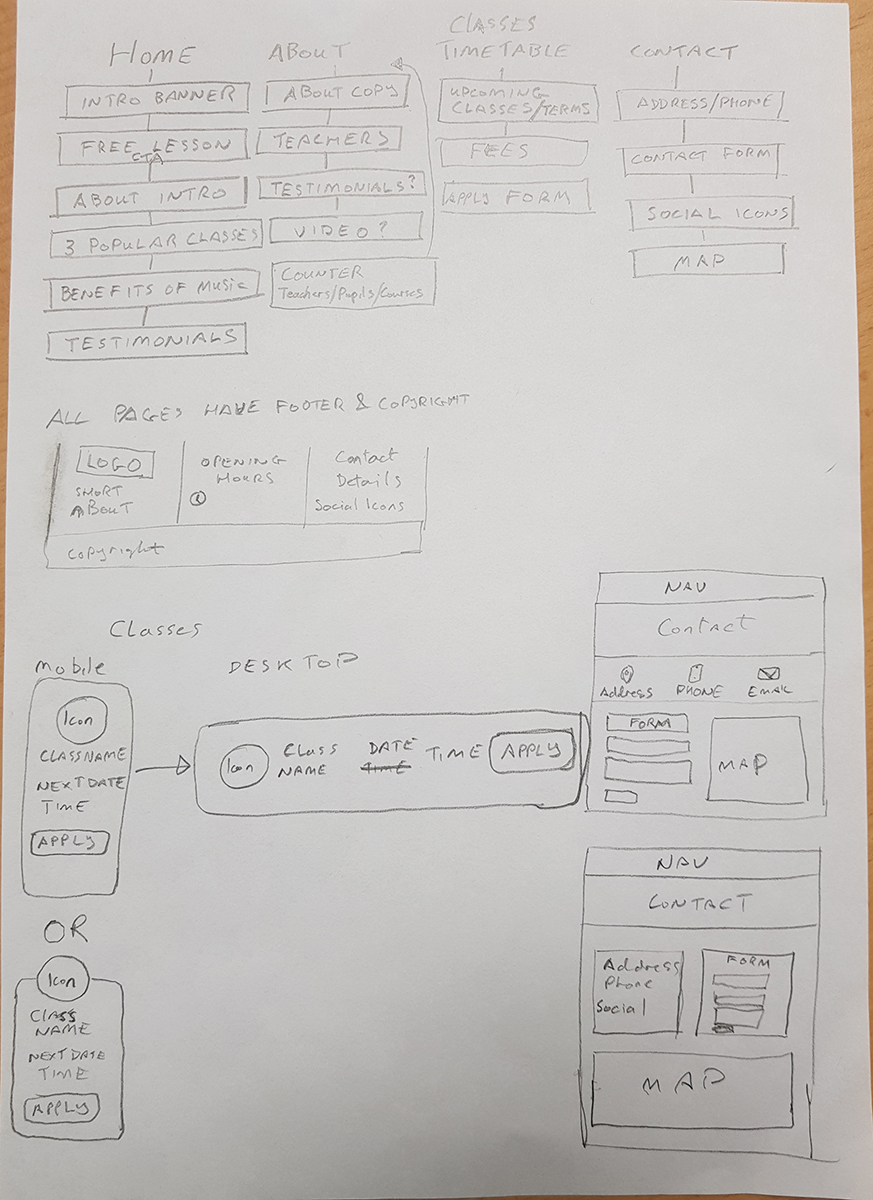 HOME
INTRO BANNER
FREE LESSON
CTA
ABOUT INTRO
3 POPULAR CLASSES
BENEFITS OF MUSIC
TESTIMONIALS
ABOUT
ABOUT COPY
TEACHERS
TESTIMONIALS?
VIDEO?
COUNTER
Teachers/Pupils/Courses
CLASSES
TIMETABLE
UPCOMING
CLASSES/TERMS
FEES
APPLY FORM
CONTACT
ADDRESS/PHONE
CONTACT FORM
SOCIAL ICONS
MAP
ALL PAGES HAVE FOOTER & COPYRIGHT
LOGO
SHORT
ABOUT
OPENING
HOURS
Contact
Details
Social Icons
Copyright
Classes
Mobile
Icon
CLASSNAME
NEXT DATE
TIME
APPLY
DESKTOP
Icon
CLASS
NAME
DATE
TIME
TIME
APPLY
OR
Icon
CLASS
NAME
NEXT DATE
TIME
APPLY
NAV
Contact
Address
PHONE
EMAIL
FORM
MAP
NAV
CONTACT
Address
Phone
Social
FORM
MAP